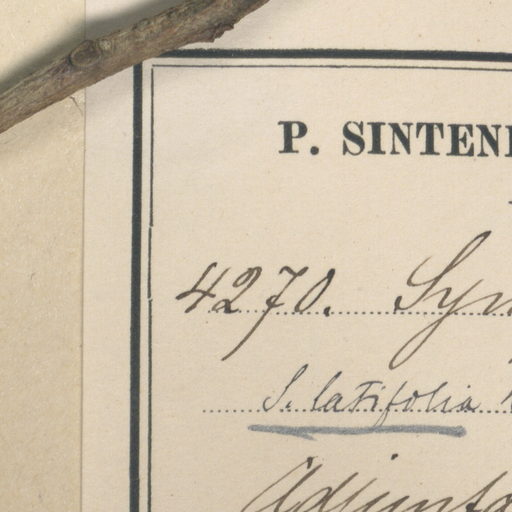 P. SINTEN
4270. Sy
S. latifolia